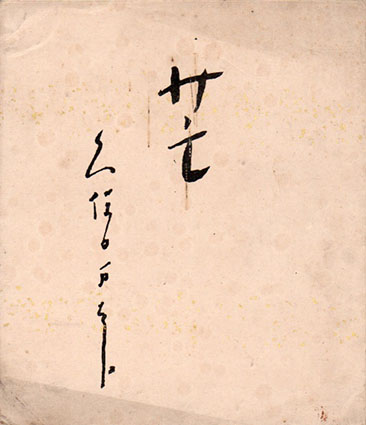 芒
久保田万太郎